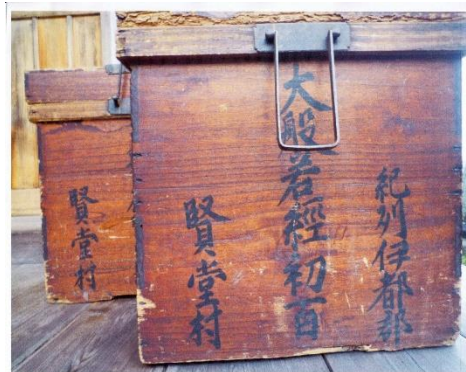 紀州伊都郡
大般若經初百
賢堂村
賢堂村